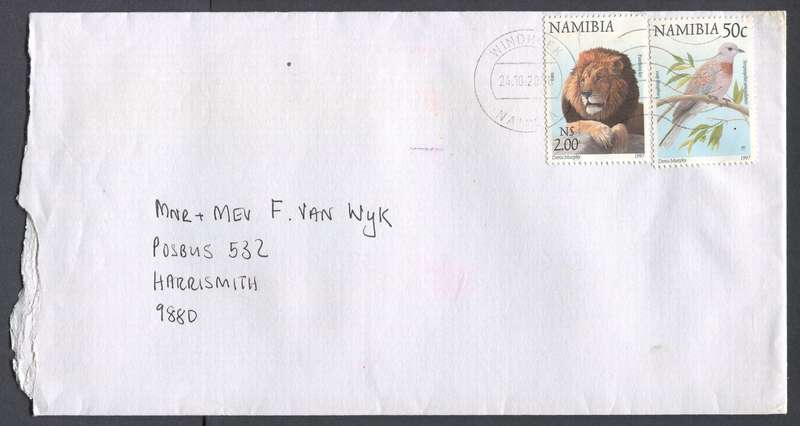 WINDHOEK
24.10.20
NAMIBIA
NAMIBIA
N$
2.00
Denis Murphy
1997
NAMIBIA 50c
Denis Murphy
1997
MNR + MEV F. VAN WYK
POSBUS 532
HARRISMITH
9880